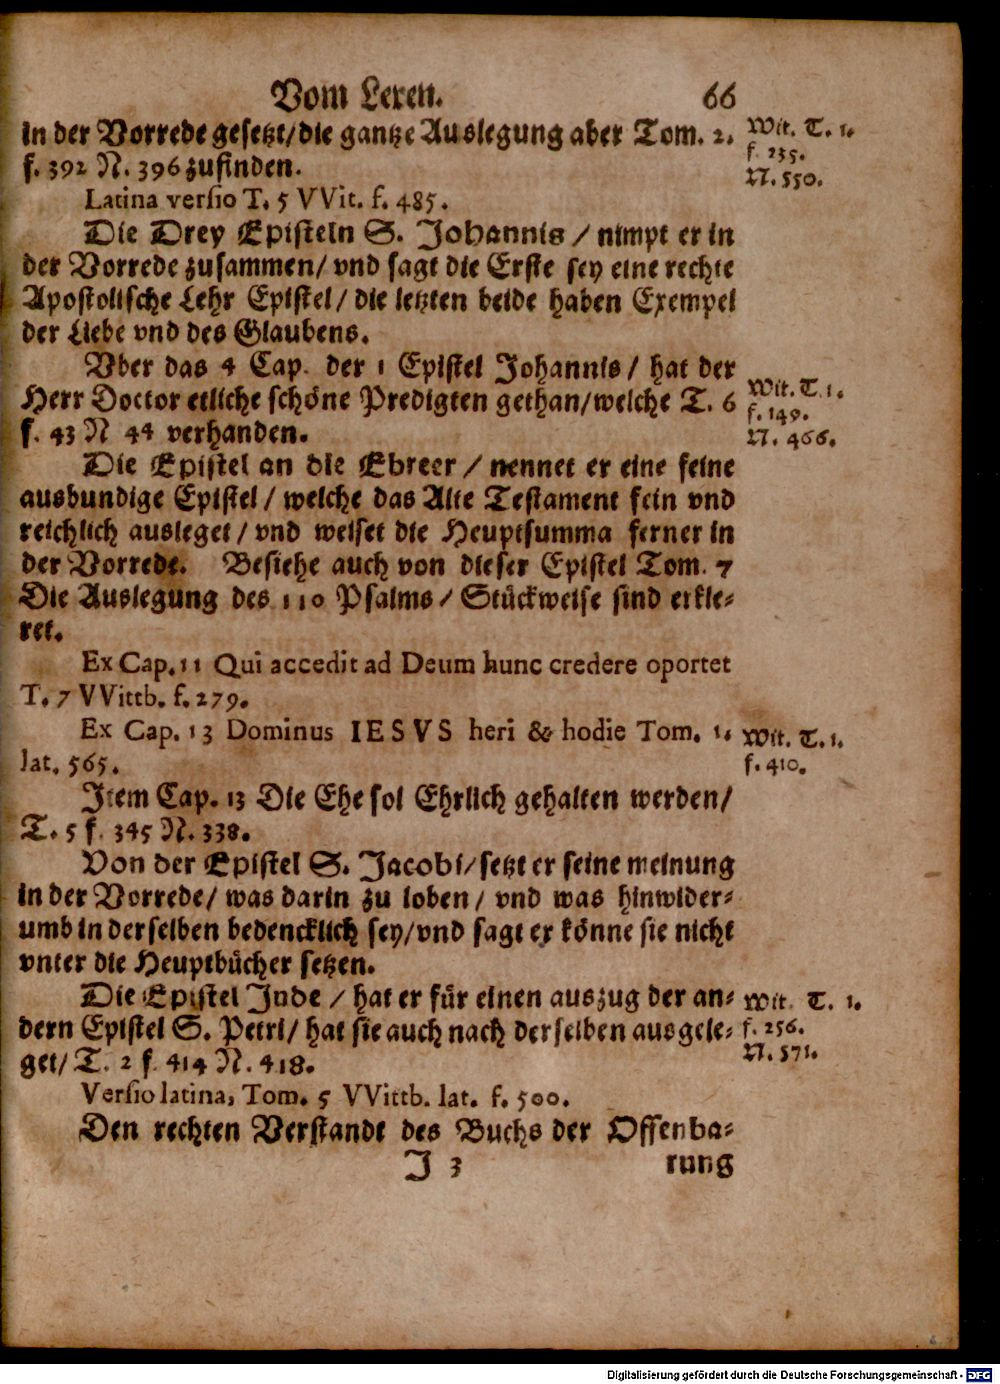 Vom Leren. 66
in der Vorrede gesetzt/die gantze Auslegung aber Tom. 2.
f. 392 N. 396 zufinden.
Wit. T. 1.
f. 235.
N. 550.
Latina versio T. 5 VVit. f. 485.
Die Drey Episteln S. Johannis / nimpt er in
der Vorrede zusammen/ vnd sagt die Erste sey eine rechte
Apostolische Lehr Epistel/ die letzten beide haben Exempel
der Liebe vnd des Glaubens.
Vber das 4 Cap. der 1 Epistel Johannis/ hat der
Herr Doctor etliche schöne Predigten gethan/welche T. 6
f. 43 N 44 verhanden.
Wit. T. 1.
f. 149.
N. 466.
Die Epistel an die Ebreer / nennet er eine feine
ausbundige Epistel/ welche das Alte Testament fein vnd
reichlich ausleget/ vnd weiset die Heuptsumma ferner in
der Vorrede. Besiehe auch von dieser Epistel Tom. 7
Die Auslegung des 110 Psalms/ Stückweise sind erkle-
ret.
Ex Cap. 11 Qui accedit ad Deum hunc credere oportet
T. 7 VVittb. f. 279.
Ex Cap. 13 Dominus IESVS heri & hodie Tom. 1.
lat. 565.
Wit. T. 1.
f. 410.
Item Cap. 13 Die Ehe sol Ehrlich gehalten werden/
T. 5 f. 345 N. 338.
Von der Epistel S. Jacobi/setzt er seine meinung
in der Vorrede/ was darin zu loben/ vnd was hinwider-
umb in derselben bedencklich sey/vnd sagt er könne sie nicht
vnter die Heuptbücher setzen.
Die Epistel Jude / hat er für einen auszug der an-
dern Epistel S. Petri/ hat sie auch nach derselben ausgele-
get/ T. 2 f. 414 N. 418.
Wit. T. 1.
f. 256.
N. 571.
Versio latina, Tom. 5 VVittb. lat. f. 500.
Den rechten Verstandt des Buchs der Offenba-
J 3 rung
Digitalisierung gefördert durch die Deutsche Forschungsgemeinschaft - DFG